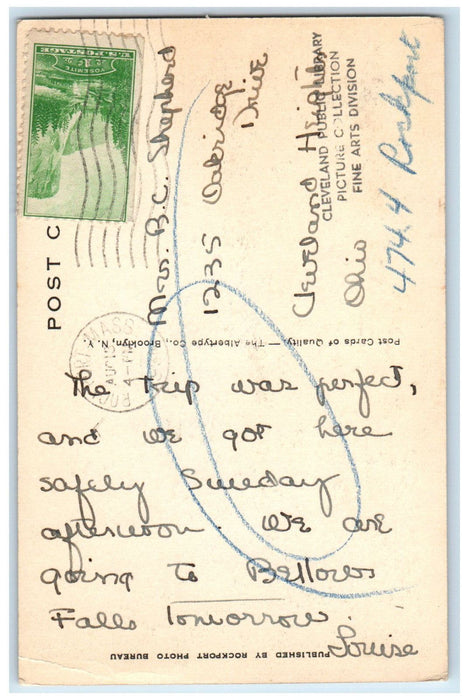 U.S. POSTAGE
YOSEMITE
1¢
POST C
MASS
AUG
Mrs. B.C. Shepherd
1235 Oakridge
Drive
Cleveland Heights
Ohio
CLEVELAND PUBLIC LIBRARY
PICTURE COLLECTION
FINE ARTS DIVISION
474.4 Rockport
Post Cards of Quality. — The Albertype Co., Brooklyn, N. Y.
The trip was perfect,
and we got here
safely Sunday
afternoon. We are
going to Bellows
Falls tomorrow.
Louise
PUBLISHED BY ROCKPORT PHOTO BUREAU